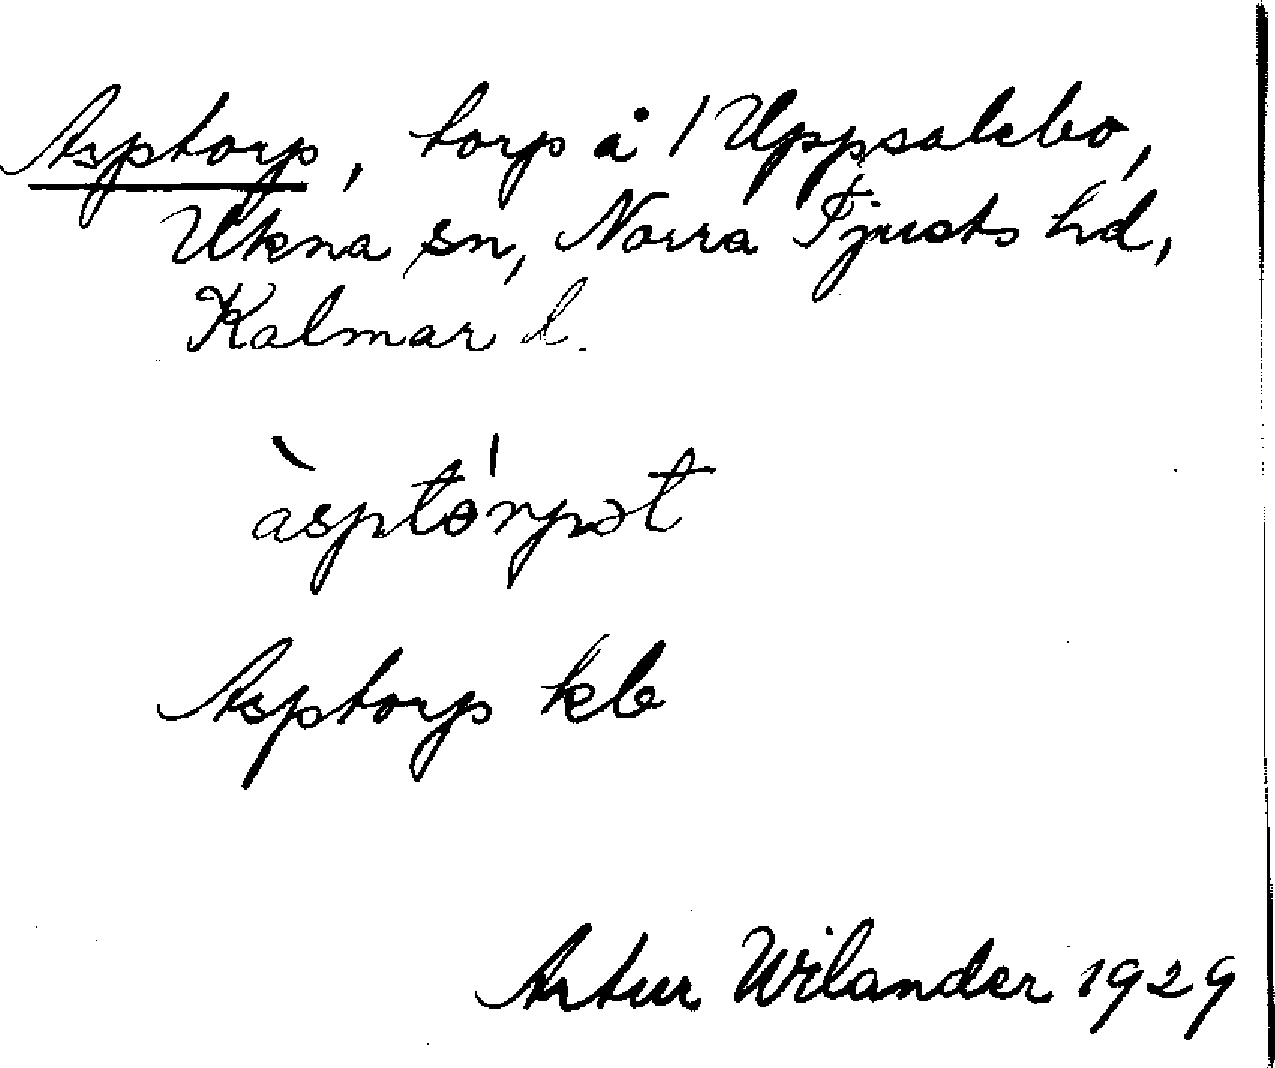 Asptorp, torp å / Uppsalebo,
Ukna sn, Norra Tjusts hd,
Kalmar l.
àsptórpət
Asptorp kb
Artur Wilander 1929